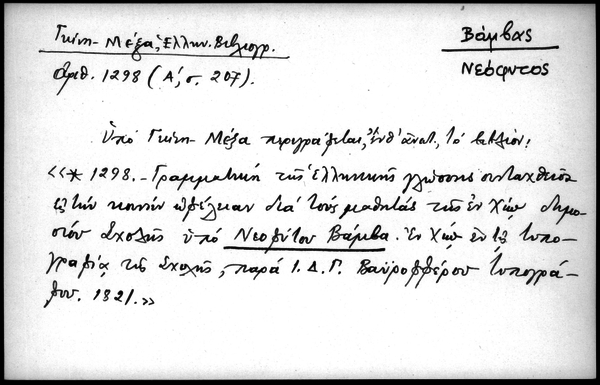 Γκίνη - Μέξα, Ἑλλην. Βιβλιογρ.
ἀριθ. 1298 (Α΄, σ. 207).
Βάμβας
Νεόφυτος
Ὑπὸ Γκίνη - Μέξα περιγράφεται, ἔνθ' ἀνωτ., τὸ βιβλίον:
«* 1298. - Γραμματικὴ τῆς Ἑλληνικῆς γλώσσης συνταχθεῖσα
εἰς τὴν κοινὴν ὠφέλειαν διὰ τοὺς μαθητὰς τῆς ἐν Χίῳ δημο-
σίου Σχολῆς ὑπὸ Νεοφύτου Βάμβα. Ἐν Χίῳ ἐν τῇ τυπο-
γραφίᾳ τῆς Σχολῆς, παρὰ Ι. Δ. Γ. Βαϋροφφέρου τυπογρά-
φου. 1821.»